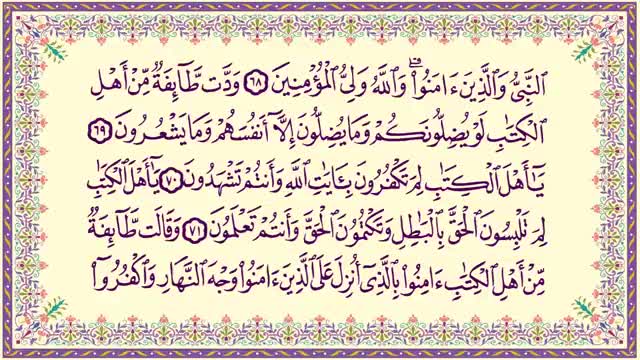 ٱلنَّبِىُّ وَٱلَّذِينَ ءَامَنُوا۟ ۗ وَٱللَّهُ وَلِىُّ ٱلْمُؤْمِنِينَ ٦٨ وَدَّت طَّآئِفَةٌ مِّنْ أَهْلِ
ٱلْكِتَٰبِ لَوْ يُضِلُّونَكُمْ وَمَا يُضِلُّونَ إِلَّآ أَنفُسَهُمْ وَمَا يَشْعُرُونَ ٦٩
يَٰٓأَهْلَ ٱلْكِتَٰبِ لِمَ تَكْفُرُونَ بِـَٔايَٰتِ ٱللَّهِ وَأَنتُمْ تَشْهَدُونَ ٧٠ يَٰٓأَهْلَ ٱلْكِتَٰبِ
لِمَ تَلْبِسُونَ ٱلْحَقَّ بِٱلْبَٰطِلِ وَتَكْتُمُونَ ٱلْحَقَّ وَأَنتُمْ تَعْلَمُونَ ٧١ وَقَالَت طَّآئِفَةٌ
مِّنْ أَهْلِ ٱلْكِتَٰبِ ءَامِنُوا۟ بِٱلَّذِىٓ أُنزِلَ عَلَى ٱلَّذِينَ ءَامَنُوا۟ وَجْهَ ٱلنَّهَارِ وَٱكْفُرُوٓا۟